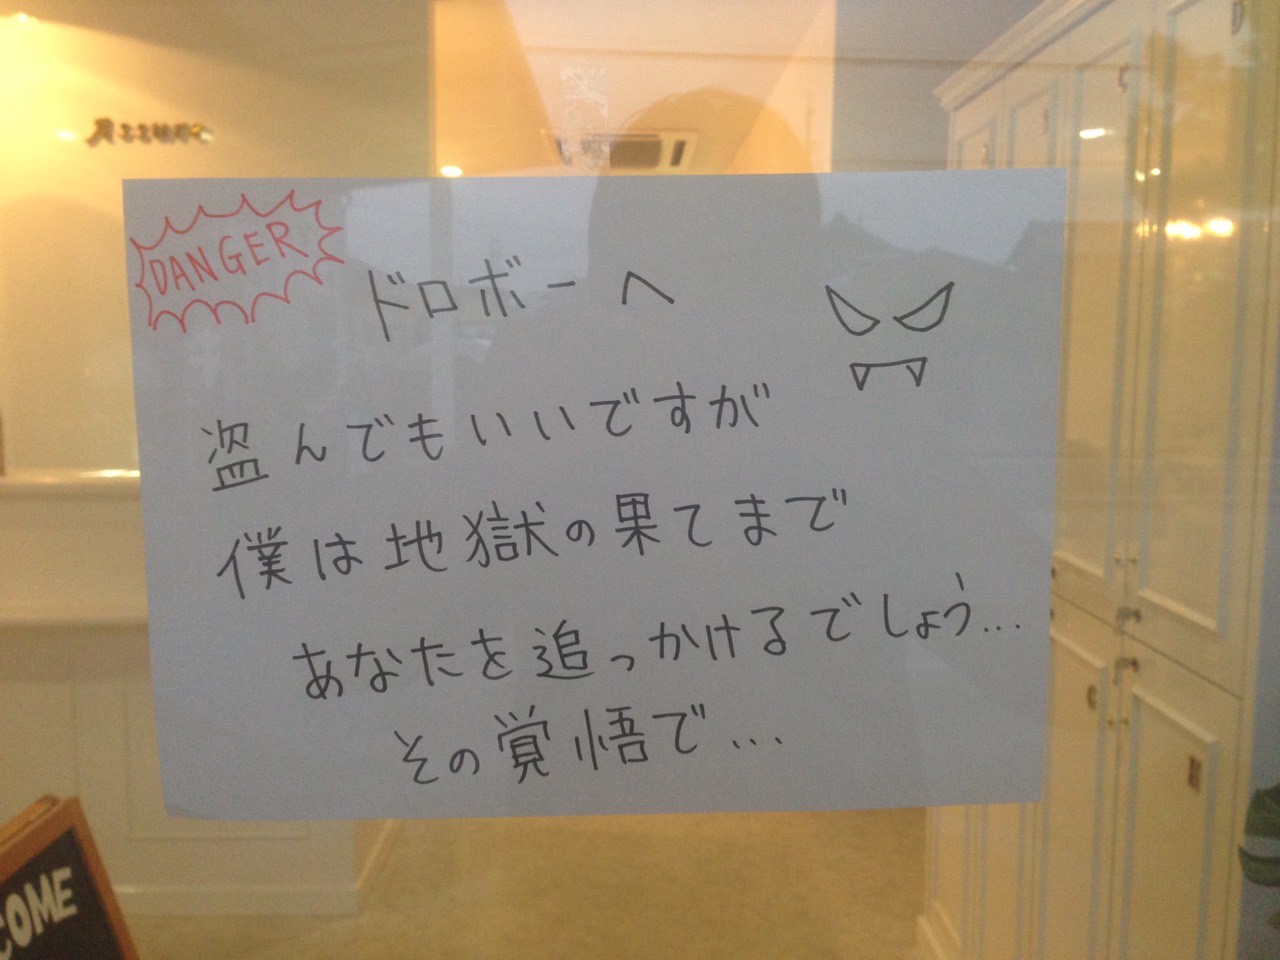 Azzurro
DANGER
ドロボーへ
盗んでもいいですが
僕は地獄の果てまで
あなたを追っかけるでしょう...
その覚悟で...
COME